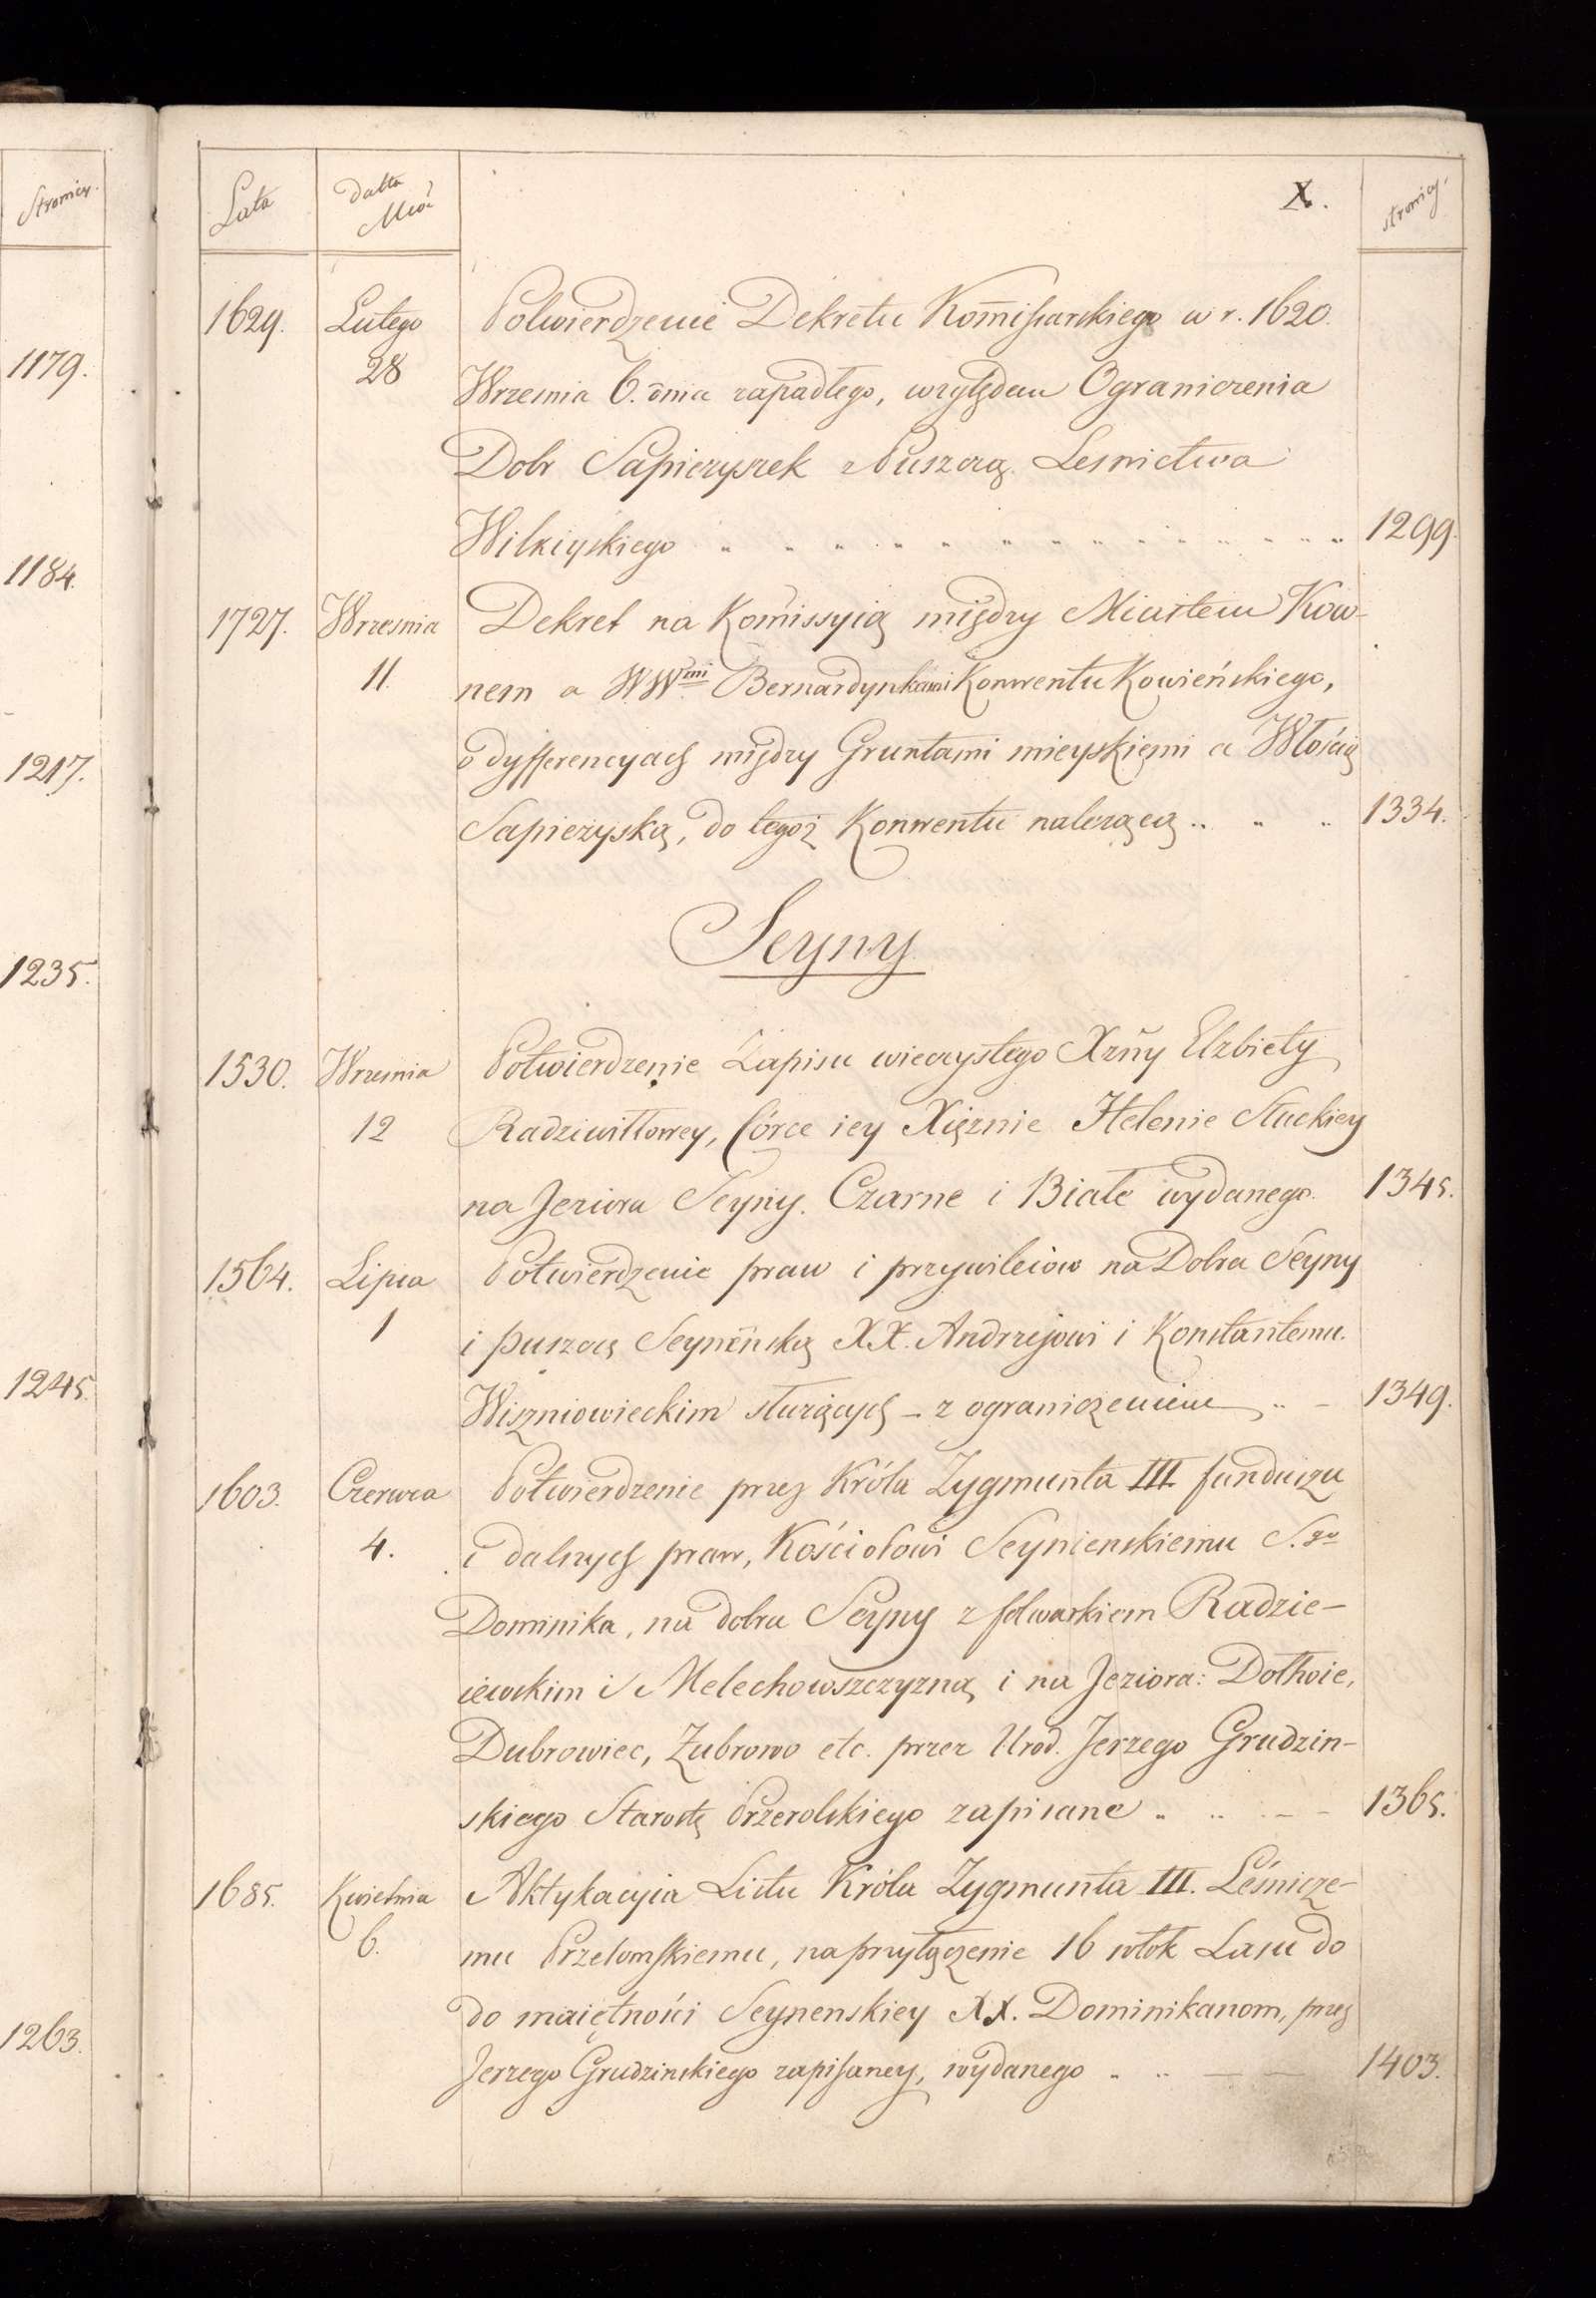 Stronicy.
1179.
1184.
1217.
1235.
1245.
1263.
X.
Lata
Datta
stronicy.
1629. Lutego Potwierdzenie Dekretu Kom̅issarskiego w r. 1620.
28 Wrzesnia 6. dnia zapadłego, względem Ograniczenia
Dobr Sapieżyszek z Puszczą Lesnictwa
Wilkiyskiego 1299.
1727. Wrzesnia Dekret na Kom̅issyią między Miastem Kow-
11. nem a WW.mi Bernardynkami Konwentu Kowieńskiego,
o dyfferencyach między Gruntami mieyskiemi a Włością
Sapieżyską, do tegoż Konwentu należącą 1334.
Seyny
1530. Wrzesnia Potwierdzenie Zapisu wieczystego Xżn̅y Elzbiety
12 Radziwiłłowey, Córce iey Xiężnie Helenie Słuckiey
na Jeziora Seyny. Czarne i Białe wydanego. 1345.
1564. Lipca Potwierdzenie praw i przywileiow na Dobra Seyny
1 i puszczę Seynenską XX. Andrzejowi i Konstantemu.
Wiszniowieckim służących - z ograniczeniem 1349.
1603. Czerwca Potwierdzenie przez Króla Zygmunta III. funduszu
4. i dalszych praw, Kościołowi Seynienskiemu S.go
Dominika, na dobra Seyny z folwarkiem Radzie-
iewskim i Melechowszczyzną i na Jeziora: Dołhoie,
Dubrowiec, Zubrowo etc. przez Urod. Jerzego Grudzin-
skiego Starostę Przerolskiego zapisane 1365.
1685. Kwietnia Aktykacyia Listu Króla Zygmunta III. Leśnicze-
6. mu Przełomskiemu, na przyłączenie 16 włok Lasu do
do maiętności Seynenskiey XX. Dominikanom, przez
Jerzego Grudzinskiego zapisaney, wydanego 1403.